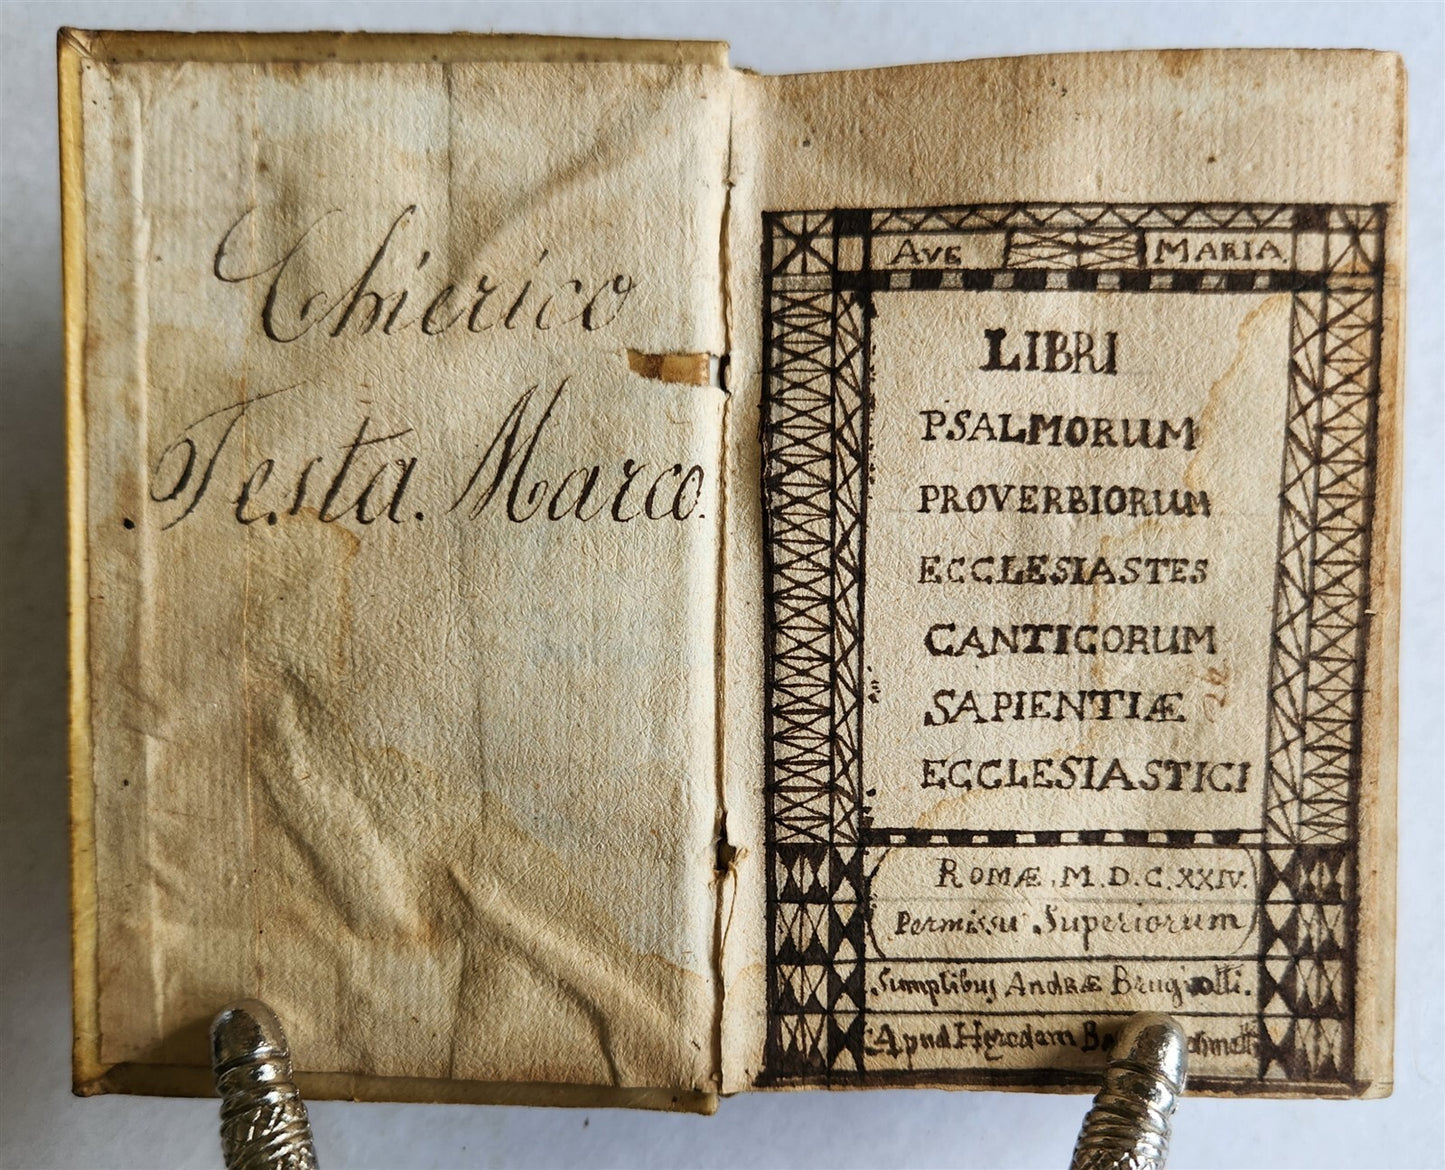 Chierico
Testa. Marco.
AVE MARIA.
LIBRI
PSALMORUM
PROVERBIORUM
ECCLESIASTES
CANTICORUM
SAPIENTIÆ
ECCLESIASTICI
ROMÆ, M.D.C.XXIV.
Permissu Superiorum
Sumptibus Andræ Brugiotti.
Apud